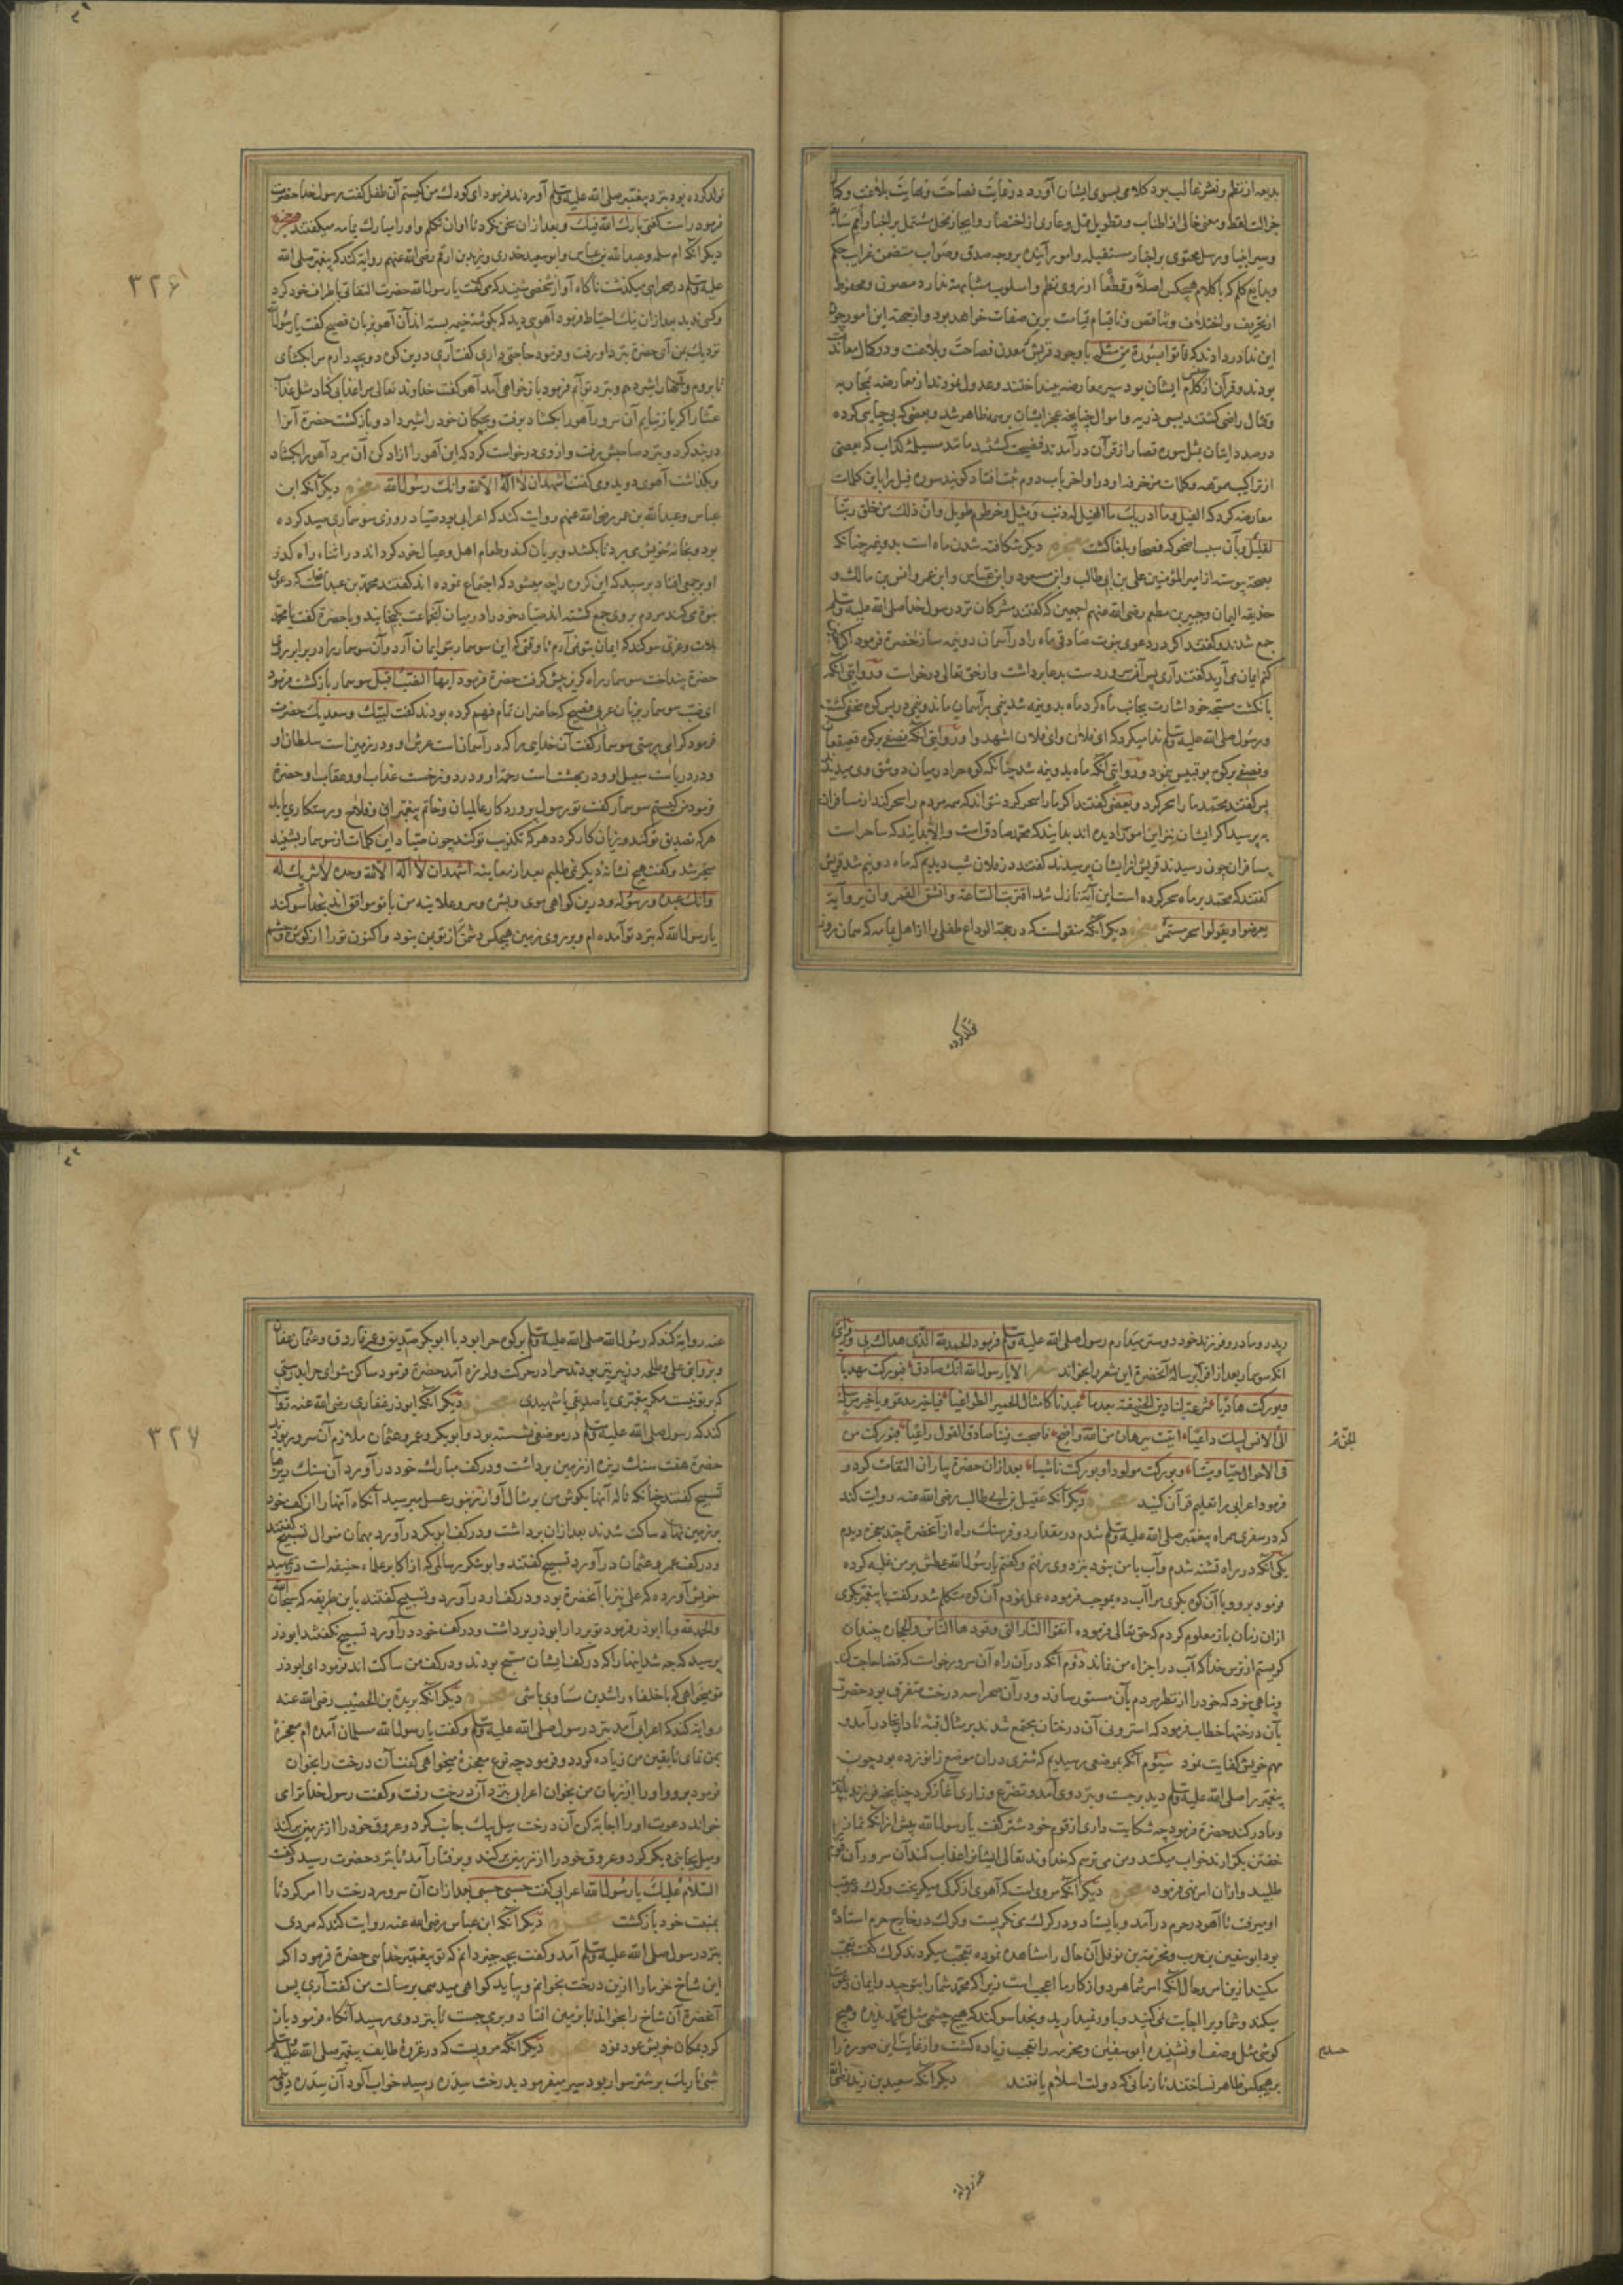 بدیعه از نظم و نثر غالب بود کلامی بسوی ایشان آورد در غایت فصاحت و نهایت بلاغت و
جزالت لفظ و معنی خالی از اطناب و تطویل ممل و عاری از اختصار و ایجاز مخل مشتمل بر اخبار امم
و سیر انبیا و رسل محتوی بر اخبار مستقبله و امور آینده بر وجه صدق و صواب متضمن غرایب حکم
و بدایع کلم که با کلام هیچکس اصلاً و قطعًا از روی نظم و اسلوب مشابهت ندارد مصون و محفوظ
از تحریف و اختلاف و تناقض و تا قیام قیامت برین صفات خواهد بود و از جهة این امور چون
این ندا در دادند که فاتوا بسورة من مثله با وجود قریش معدن فصاحت و بلاغت و در کمال معاندت
بودند و قرآن از کلام ایشان بود سپر معارضه بینداختند و عدول نمودند از معارضه بمحاربه
و قتال راضی گشتند بسبی ذریه و اموال چنانچه عجز ایشان بر همه ظاهر شد و بعضی که بی حیایی کرده
در صدد ایشان بمثل سوره قصار از قرآن در آمدند فضیحت گشتند مانند مسیلمه کذاب که بعضی
از تراکیب موهمه و کلمات مزخرفه او در اواخر باب دوم ثبت افتاد گویند سوره فیل را باین کلمات
معارضه کرد که الفیل وما ادریک ما الفیل له ذنب وبیل وخرطوم طویل وان ذلک من خلق ربنا
لقلیل و آن سبب اضحوکه فصحا و بلغا گشت معجزه دیگر شکافته شدن ماه است بدو نیمه چنانکه
بصحة پیوسته از امیر المؤمنین علی بن ابی طالب و ابن مسعود و ابن عباس و ابن عمر و انس بن مالک و
حذیفه الیمان و جبیر بن مطعم رضی الله عنهم اجمعین که گفتند مشرکان نزد رسول خدا صلی الله علیه وسلم
جمع شدند و گفتند اگر در دعوی نبوت صادقی ماه را در آسمان دو نیمه ساز حضرة فرمود اگر
کنم ایمان می آرید گفتند آری پس آن سرور دست بدعا برداشت و از حق تعالی درخواست و در روایتی آنکه
بانگشت مسبحه خود اشارت بجانب ماه کرد ماه بدو نیمه شد نیمی بر آسمان ماند و نیمی در پس کوه مخفی گشت
و رسول صلی الله علیه وسلم ندا میکرد که ای فلان و ای فلان اشهدوا و در روایتی آنکه نصفی بر کوه قعیقعان
و نصفی بر کوه بو قبیس بنمود و در روایتی آنکه ماه بدو نیمه شد چنانکه کوه حرا در میان دو شق وی میدیدند
پس گفتند محمد ما را سحر کرد و بعضی گفتند اگر ما را سحر کرد نتواند که همه مردم را سحر کند از مسافران
بپرسید اگر ایشان نیز این امر را دیده اند بدانید که محمد صادق است و الا بدانید که ساحر است
مسافران چون رسیدند قریش از ایشان پرسیدند گفتند در فلان شب دیدیم که ماه دو نیم شد قریش
گفتند که محمد بر ماه سحر کرده است این آیة نازل شد اقتربت الساعة وانشق القمر وان یروا آیة
یعرضوا ویقولوا سحر مستمر معجزه دیگر آنکه منقولست که در حجة الوداع طفلی را از اهل یمامه که همان روز
تولد کرده
تولد کرده بود بنزد پیغمبر صلی الله علیه وسلم آوردند فرمود ای کودک من کیستم آن طفل گفت رسول خدا حضرت
فرمود راست گفتی بارک الله فیک و بعد از آن سخن نکرد تا اوان تکلم و او را مبارک یمامه میگفتند معجزه
دیگر آنکه ام سلمه و عبد الله بن عباس و ابو سعید خدری و زید بن ارقم رضی الله عنهم روایة کنند که پیغمبر صلی الله
علیه وسلم در صحرایی میگذشت ناگاه آواز شخصی شنید که می گفت یا رسول الله حضرت التفات باطراف خود کرد
و کسی ندید بعد از آن نیک احتیاط فرمود آهویی دید که بگوشه خیمه بسته اند آن آهو بزبان فصیح گفت یا رسول الله
نزدیک من آی حضرة بنزد او رفت و فرمود حاجتی داری گفت آری درین کوه دو بچه دارم مرا بگشای
تا بروم و آنها را شیر دهم و بنزد تو آیم فرمود باز خواهی آمد آهو گفت خداوند تعالی مرا عذابی کناد مثل عذاب
عشار اگر باز نیایم آن سرور آهو را بگشاد برفت و بچگان خود را شیر داد و باز گشت حضرة آنرا
در بند کرد و بنزد صاحبش رفت و از وی درخواست کرد که این آهو را آزاد کن آن مرد آهو را بگشاد
و بگذاشت آهو می دوید و می گفت اشهد ان لا اله الا الله وانک رسول الله معجزه دیگر آنکه ابن
عباس و عبد الله بن عمر رضی الله عنهم روایت کنند که اعرابی بود صیاد روزی سوسماری صید کرده
بود و بخانه خویش می برد تا بکشد و بریان کند و طعام اهل و عیال خود گرداند در اثناء راه گذر
او بر جمعی افتاد پرسید که این گروه را چه میشود که اجتماع نموده اند گفتند محمد بن عبد الله است که دعوی
نبوة می کند مردم بر وی جمع گشته اند صیاد خود را در میان آنجماعت بگنجانید و با حضرة گفت یا محمد
بلات و عزی سوگند که ایمان بتو نمی آرم تا وقتی که این سوسمار بتو ایمان آرد و آن سوسمار را در برابر روی
حضرة بینداخت سوسمار راه گریز پیش گرفت حضرة فرمود ایها الضب اقبل سوسمار باز گشت فرمود
ای ضب سوسمار بزبان عربی فصیح که حاضران تمام فهم کرده بودند گفت لبیک وسعدیک حضرت
فرمود کرا می پرستی سوسمار گفت آن خدایی را که در آسمان است عرش او و در زمین است سلطان او
و در دریاست سبیل او و در بهشت است رحمة او و در دوزخست عذاب او و عقاب او حضرة
فرمود من کیستم سوسمار گفت تو رسول پروردگار عالمیان و خاتم پیغمبرانی و فلاح و رستگاری یابد
هرکه تصدیق تو کند و زیان کار گردد هرکه تکذیب تو کند چون صیاد این کلمات از سوسمار بشنید
متحیر شد و گفت هیچ نشانه دیگر نمی طلبم بعد از معاینه اشهد ان لا اله الا الله وحده لا شریک له
وانک عبده ورسوله و درین گواهی موی و بشره و سر و علانیه من با تو موافق اند بخدا سوگند
یا رسول الله که بنزد تو آمده ام و بر روی زمین هیچکس دشمن تر از تو بمن نبود و اکنون ترا از گوش و چشم
۳۲۶
و پدر و مادر و فرزند خود دوستر میدارم رسول صلی الله علیه وسلم فرمود الحمد لله الذی هداک بی
آنکه سوسمار بعد از اقرار برسالة آنحضرة این شعرها بخواند شعر الا یا رسول الله انک صادق فبورکت مهدیا
وبورکت هادیا شرعت لنا دین الحنیفة بعدما عبدنا کامثال الحمیر الطواغیا فیا خیر مدعو ویا خیر مرسل
الی الانس لبیک داعیا اتیت ببرهان من الله واضح فاصبحت فینا صادق القول راعیا فبورکت من
فی الاحوال حیا ومیتا وبورکت مولودا وبورکت ناشیا بعد از آن حضرة بیاران التفات کرد و
الجن ثم
فرمود اعرابی را تعلیم قرآن کنید معجزه دیگر آنکه عقیل بن ابی طالب رضی الله عنه روایت کند
که در سفری همراه پیغمبر صلی الله علیه وسلم شدم در مقدار دو فرسنگ راه از آنحضرة چند معجزه دیدم
یکی آنکه در راه تشنه شدم و آب با من نبود بنزد وی رفتم و گفتم یا رسول الله عطش بر من غلبه کرده
فرمود برو و با آن کوه بگوی مرا آب ده بموجب فرموده عمل نمودم آن کوه متکلم شد و گفت با پیغمبر بگوی
از آن زمان باز معلوم کردم که حق تعالی فرموده اتقوا النار التی وقودها الناس والحجارة چندان
گریستم از ترس خدا که آب در اجزاء من نماند دوم آنکه در آن راه آن سرور خواست که قضا حاجت کند
و پناهی نبود که خود را از نظر مردم بآن مستور سازد و در آن صحرا سه درخت متفرق بود حضرت
بآن درختها خطاب فرمود که استرونی آن درختان مجتمع شدند بر مثال قبه تا در آنجا در آمد و
مهم خویش کفایت نمود سیوم آنکه بموضعی رسیدیم که شتری در آن موضع زانو زده بود چون
پیغمبر را صلی الله علیه وسلم دید بر جست و بنزد وی آمد و تضرع و زاری آغاز کرد چنانچه فرزند با پدر
و مادر کند حضرة فرمود چه شکایت داری از قوم خود شتر گفت یا رسول الله پیش از آنکه نماز
خفتن بگزارند خواب میکنند و من می ترسم که خداوند تعالی ایشانرا عقاب کند آن سرور آن قوم را
طلبید و از آن امر نهی فرمود معجزه دیگر آنکه مرویست که آهوی از گرگی میگریخت و گرگ در عقب
او میرفت تا آهو در حرم در آمد و بایستاد و در گرگ می نگریست و گرگ در خارج حرم استاده
بود ابو سفین بن حرب و مخرمة بن نوفل آن حال را مشاهده نموده تعجب میکردند گرگ گفت تعجب
میکنید ازین امر و حال آنکه امر شما هر دو از کار ما اعجب است زیرا که محمد شما را بتوحید و ایمان دعوت
میکند و شما ویرا اجابت نمی کنید و باور نمیدارید و بخدا سوگند که هیچ چشمی مثل محمد ندیده و هیچ
گوشی مثل وصف او نشنیده ابو سفین و مخرمه را تعجب زیاده گشت و از غایت این صورة را
بر هیچکس ظاهر نساختند تا زمانی که دولت اسلام یافتند دیگر آنکه سعید بن زید رضی الله
عنه روایة
عنه روایة کند که رسول الله صلی الله علیه وسلم بر کوه حرا بود با ابوبکر صدیق و عمر فاروق و عثمان عفان
و بروایتی علی و طلحه و زبیر نیز بودند حرا در حرکت و لرزه آمد حضرة فرمود ساکن شو ای حرا بدرستی
که بر تو نیست مگر پیغمبری یا صدیقی یا شهیدی معجزه دیگر آنکه ابوذر غفاری رضی الله عنه روایة
کند که رسول صلی الله علیه وسلم در موضعی نشسته بود و ابوبکر و عمر و عثمان ملازم آن سرور بودند
حضرة هفت سنک ریزه از زمین برداشت و در کف مبارک خود در آورد آن سنک ریزها
تسبیح گفتند چنانکه ناله آنها بگوش من بر مثال آواز زنبور عسل میرسید آنگاه آنها را از کف خود
بر زمین نهاد ساکت شدند بعد از آن برداشت و در کف ابوبکر در آورد بهمان منوال تسبیح گفتند
و در کف عمر و عثمان در آورد تسبیح گفتند و ابو شکور سالمی که از اکابر علماء حنیفه است در تمهید
خویش آورده که علی نیز با آنحضرة بود و در کف او در آورد و تسبیح گفتند باین طریقه که سبحان الله
والحمد لله و با ابوذر فرمود تو بردار ابوذر برداشت و در کف خود در آورد تسبیح نگفتند ابوذر
پرسید که چه شد اینها را که در کف ایشان مسبح بودند و در کف من ساکت اند فرمود ای ابوذر
تو میخواهی که با خلفاء راشدین مساوی باشی معجزه دیگر آنکه بریدة بن الحصیب رضی الله عنه
روایة کند که اعرابی آمد بنزد رسول صلی الله علیه وسلم و گفت یا رسول الله مسلمان آمده ام معجزة
بمن نمای تا یقین من زیاده گردد فرمود چه نوع معجزة میخواهی گفت آن درخت را بخوان
فرمود برو و او را از زبان من بخوان اعرابی بنزد آن درخت رفت و گفت رسول خدا ترا می
خواند دعوت او را اجابة کن آن درخت میل بیک جانب کرد و عروق خود را از زمین بر کند
و میل بجانبی دیگر کرد و عروق خود را از زمین بر کند و برفتار آمد تا بنزد حضرت رسید و گفت
السلام علیک یا رسول الله اعرابی گفت حسبی حسبی بعد از آن آن سرور درخت را امر کرد تا
بمنبت خود باز گشت معجزه دیگر آنکه ابن عباس رضی الله عنه روایت کند که مردی
بنزد رسول صلی الله علیه وسلم آمد و گفت بچه چیز دانم که تو پیغمبر خدایی حضرة فرمود اگر
این شاخ خرما را ازین درخت بخوانم و بیاید گواهی میدهی برسالت من گفت آری پس
آنحضرة آن شاخ را بخواند تا بزمین افتاد و بر می جست تا بنزد وی رسید آنگاه فرمود باز
گرد بمکان خویش عود نمود معجزه دیگر آنکه مرویست که در غزوة طایف پیغمبر صلی الله علیه وسلم
شبی تاریک بر شتر سوار بود سیر میفرمود بدرخت سدره رسید خواب آلود آن سدره
۳۲۷